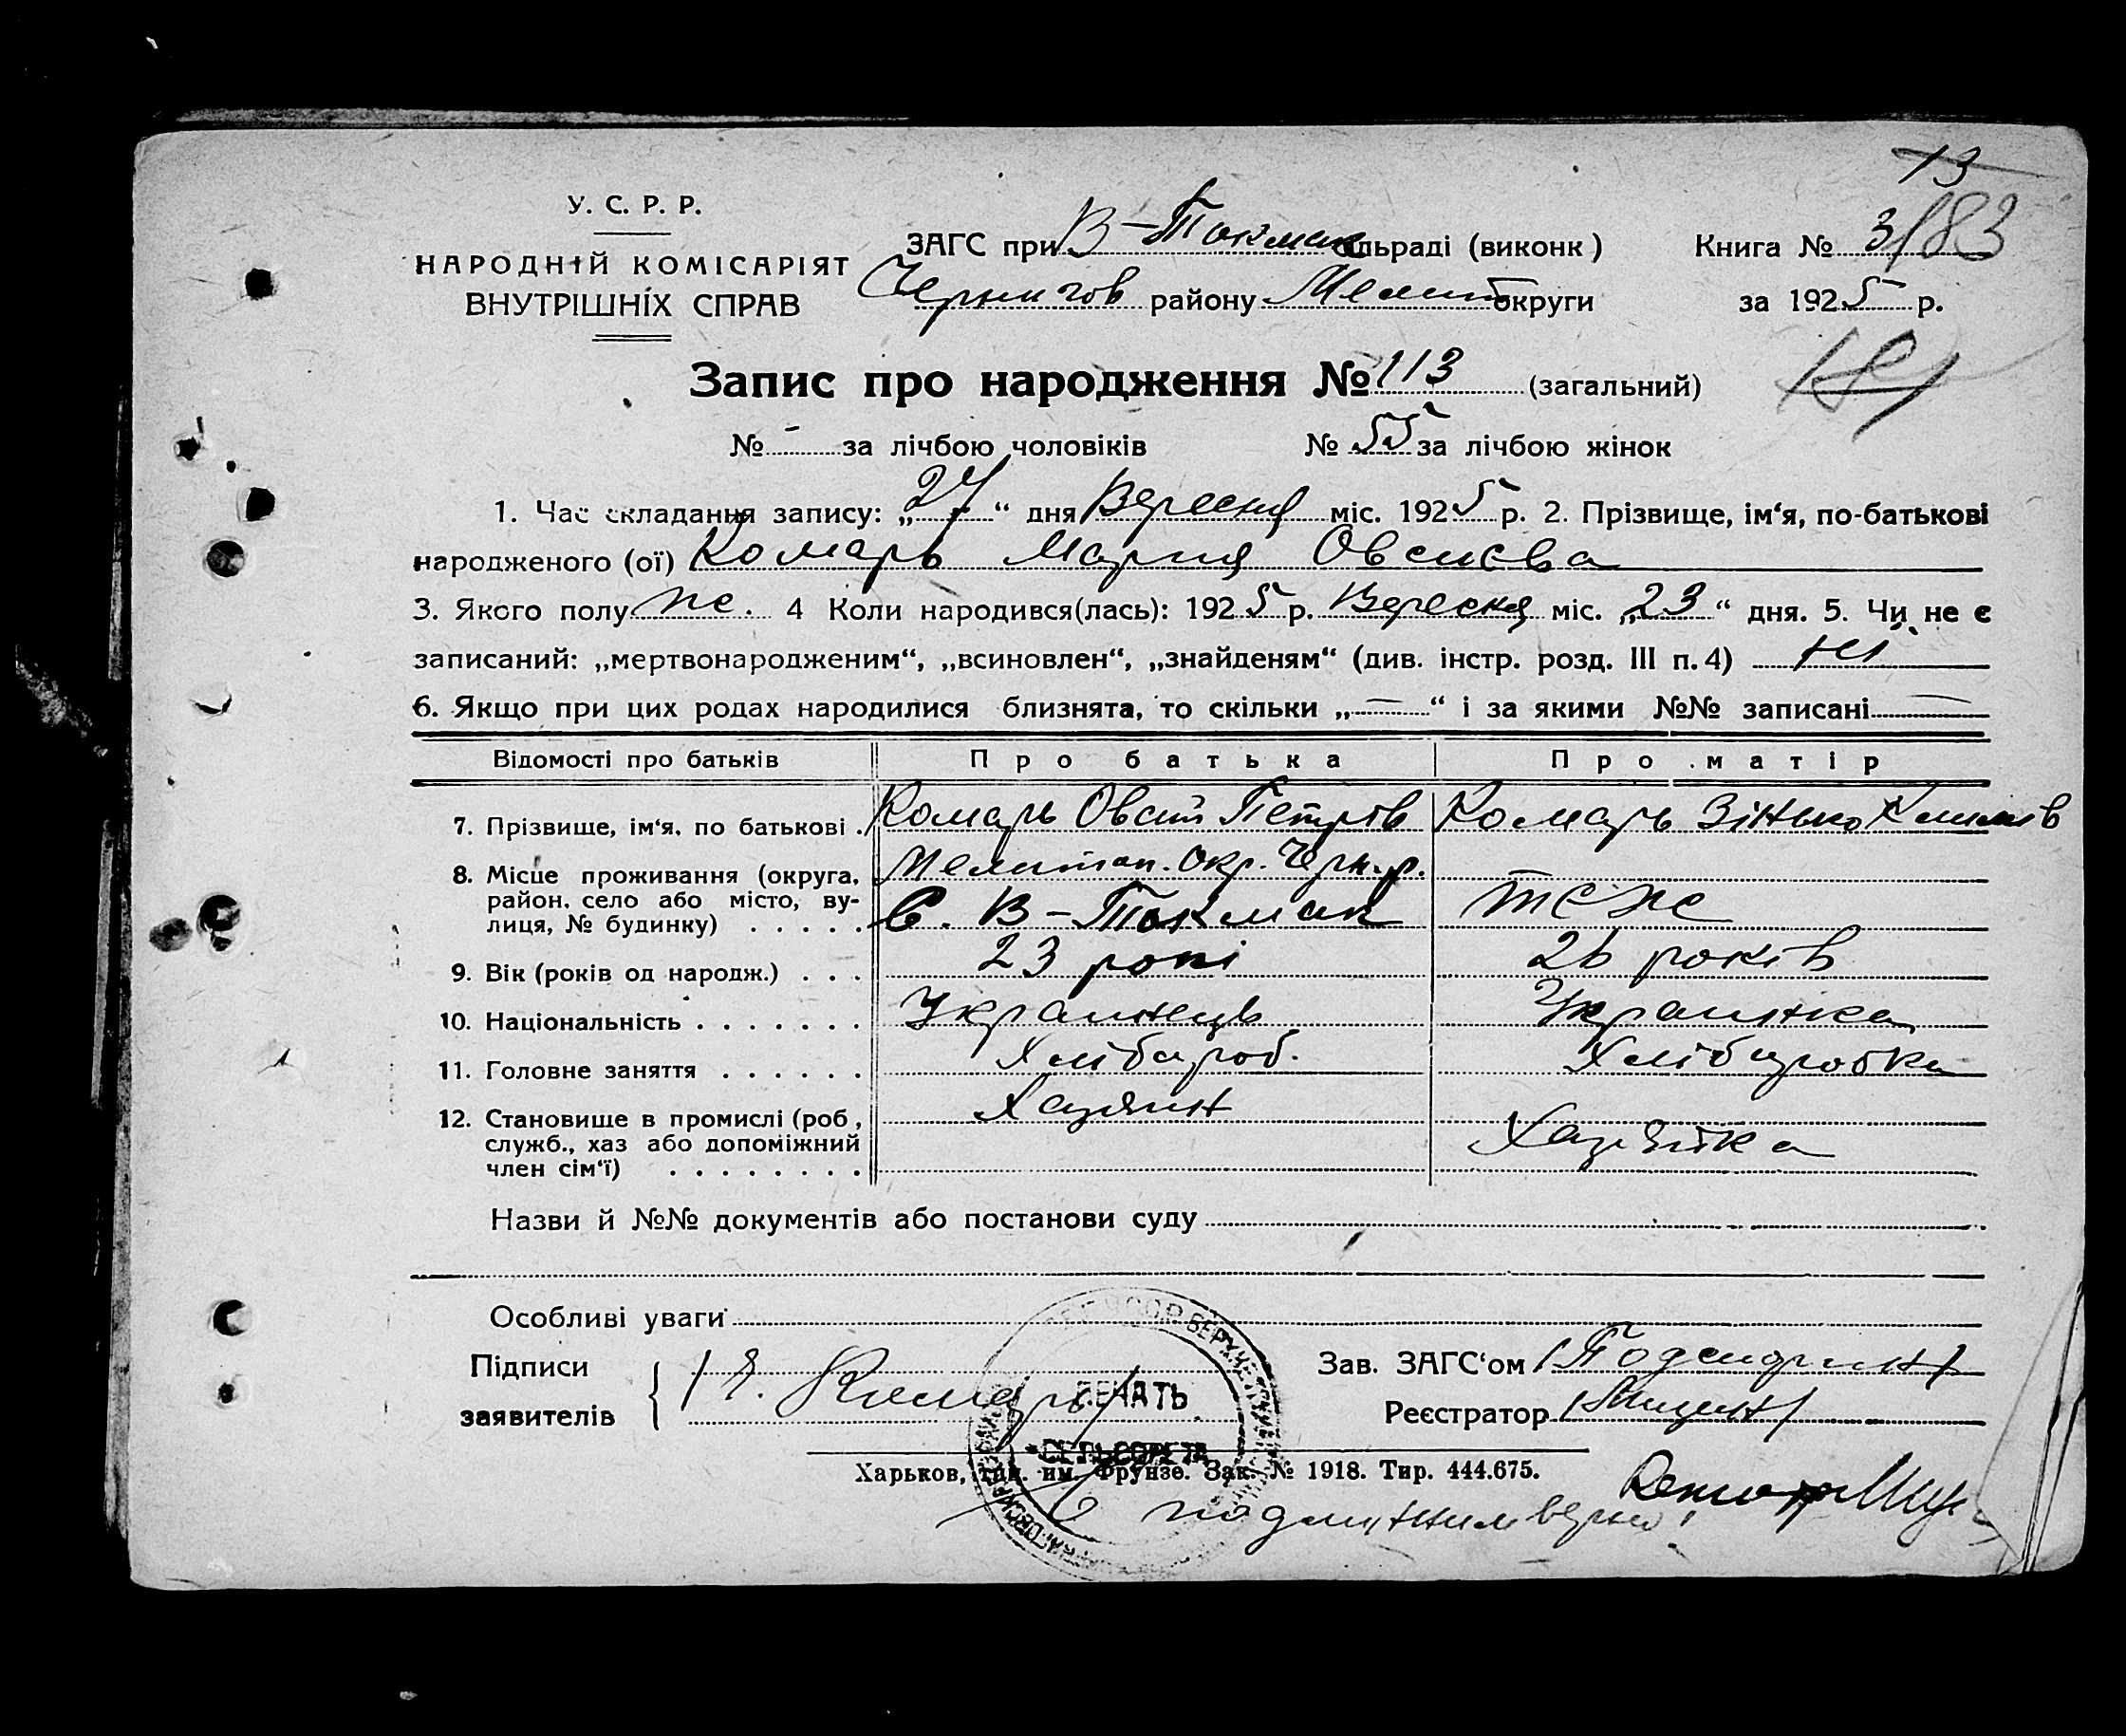 13
У. С. Р. Р.
НАРОДНІЙ КОМІСАРІЯТ
ВНУТРІШНІХ СПРАВ
ЗАГС при В-Токмак сільраді (виконк)
Чернигов району Мелит округи
Книга № 3
183
за 1925 р.
181
Запис про народження № 113 (загальний)
№ - за лічбою чоловіків № 55 за лічбою жінок
1. Час складання запису: „27“ дня Вересня міс. 1925 р. 2. Прізвище, ім‘я, по-батькові
народженого (ої) Комарь Мария Овсиєва
3. Якого полу ж. 4 Коли народився(лась): 1925 р. Вересня міс. „23“ дня. 5. Чи не є
записаний: „мертвонародженим“, „всиновлен“, „знайденям“ (див. інстр. розд. III п. 4) Ні
6. Якщо при цих родах народилися близнята, то скільки „—“ і за якими №№ записані —
Відомості про батьків Про батька Про матір
7. Прізвище, ім‘я, по батькові . Комарь Овсій Петрів Комарь Зінько
8. Місце проживання (округа, район, село або місто, вулиця, № будинку) . . . . . Мелитоп. Окр. Черн. р.
С. В-Токмак теже
9. Вік (років од народж.) . . . 23 рокі 26 років
10. Національність . . . . . . . Украинець Украинка
11. Головне заняття . . . . . . Хлібароб. Хлібаробка
12. Становище в промислі (роб, служб., хаз або допоміжний член сім‘ї) . . . . . . . . Хазяин Хазяйка
Назви й №№ документів або постанови суду
Особливі уваги
Підписи
заявителів
/Є. Комарь/
ПЕЧАТЬ
СЕЛЬСОВЕТА
Зав. ЗАГС‘ом
Реєстратор
Харьков, тип. им. Фрунзе. Зак. № 1918. Тир. 444.675.
С подлинним верно!